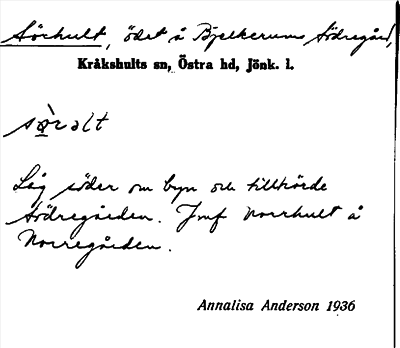 Sörhult, ödet å Bjelkerums Södregård,
Kråkshults sn, Östra hd, Jönk. l.
sø̀ralt
Låg söder om byn och tillhörde
Södregården. Jmf Norrhult å
Norregården.
Annalisa Anderson 1936